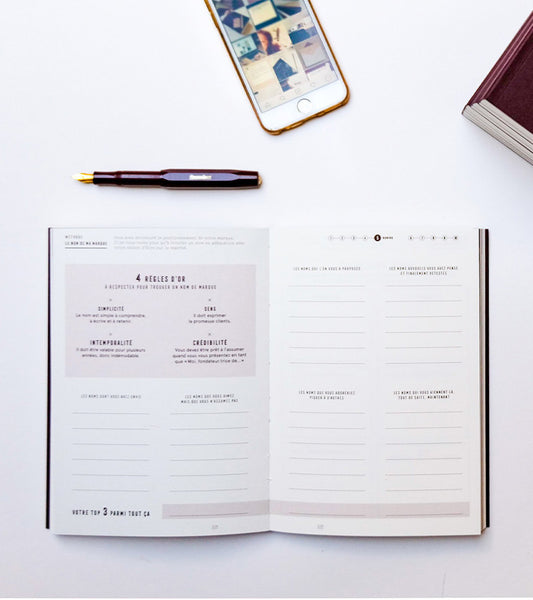 MÉTHODE
LE NOM DE MA MARQUE
Vous avez déterminé le positionnement de votre marque.
4 RÈGLES D'OR
À RESPECTER POUR TROUVER UN NOM DE MARQUE
SIMPLICITÉ
Le nom est simple à comprendre,
à écrire et à retenir.
SENS
Il doit exprimer
la promesse clients.
INTEMPORALITÉ
Il doit être valable pour plusieurs
années, donc indémodable
CRÉDIBILITÉ
Vous devez être prêt à l'assumer
quand vous vous présentez en tant
que « Moi, fondateur·trice de... »
LES NOMS DONT VOUS AVEZ ENVIE
LES NOMS QUE VOUS AIMEZ
MAIS QUE VOUS N'ASSUMEZ PAS
VOTRE TOP 3 PARMI TOUT ÇA
1 2 3 4 5 6 7 8 9
LES NOMS QUE L'ON VOUS A PROPOSÉS
LES NOMS AUXQUELS VOUS AVEZ PENSÉ
ET FINALEMENT DÉTESTÉS
LES NOMS QUE VOUS ADORERIEZ
PIQUER À D'AUTRES
LES NOMS QUI VOUS VIENNENT LÀ,
TOUT DE SUITE, MAINTENANT